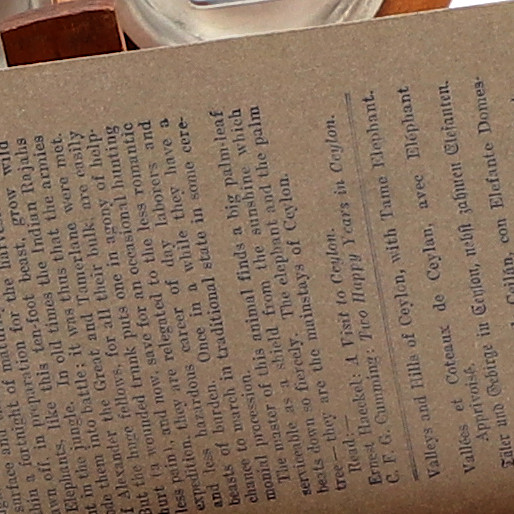 surface and
of
the
grow wild
hin a fortnight of
in preparation for the
wn off, like this ten-foot beast,
Elephants, In old times the Indian Rajahs
nt in the jungle. it was thus that the armies
de them into battle; Tamerlane were met.
f Alexander the Great and
But the huge fellows, for all their bulk, are easily
hurt (a wounded trunk puts one in agony of help-
less pain), and now, save for an occasional hunting
expedition, they are relegated to the less romantic
and less hazardous career of day laborers and
beasts of burden. Once in a while they have a
chance to march in traditional state in some cere-
monial procession.
The master of this animal finds a big palm-leaf
serviceable as a shield from the sunshine which
beats down so fiercely. The elephant and the palm
tree—they are the mainstays of Ceylon.
Read:—
Ernst Haeckel: A Visit to Ceylon.
C. F. G. Cumming: Two Happy Years in Ceylon.
Valleys and Hills of Ceylon, with Tame Elephant.
Vallées et Coteaux de Ceylan, avec Elephant
Apprivoisé.
Täler und Gebirge in Ceylon, nebst zahmen Elefanten.
de Ceilán, con Elefante Domes-